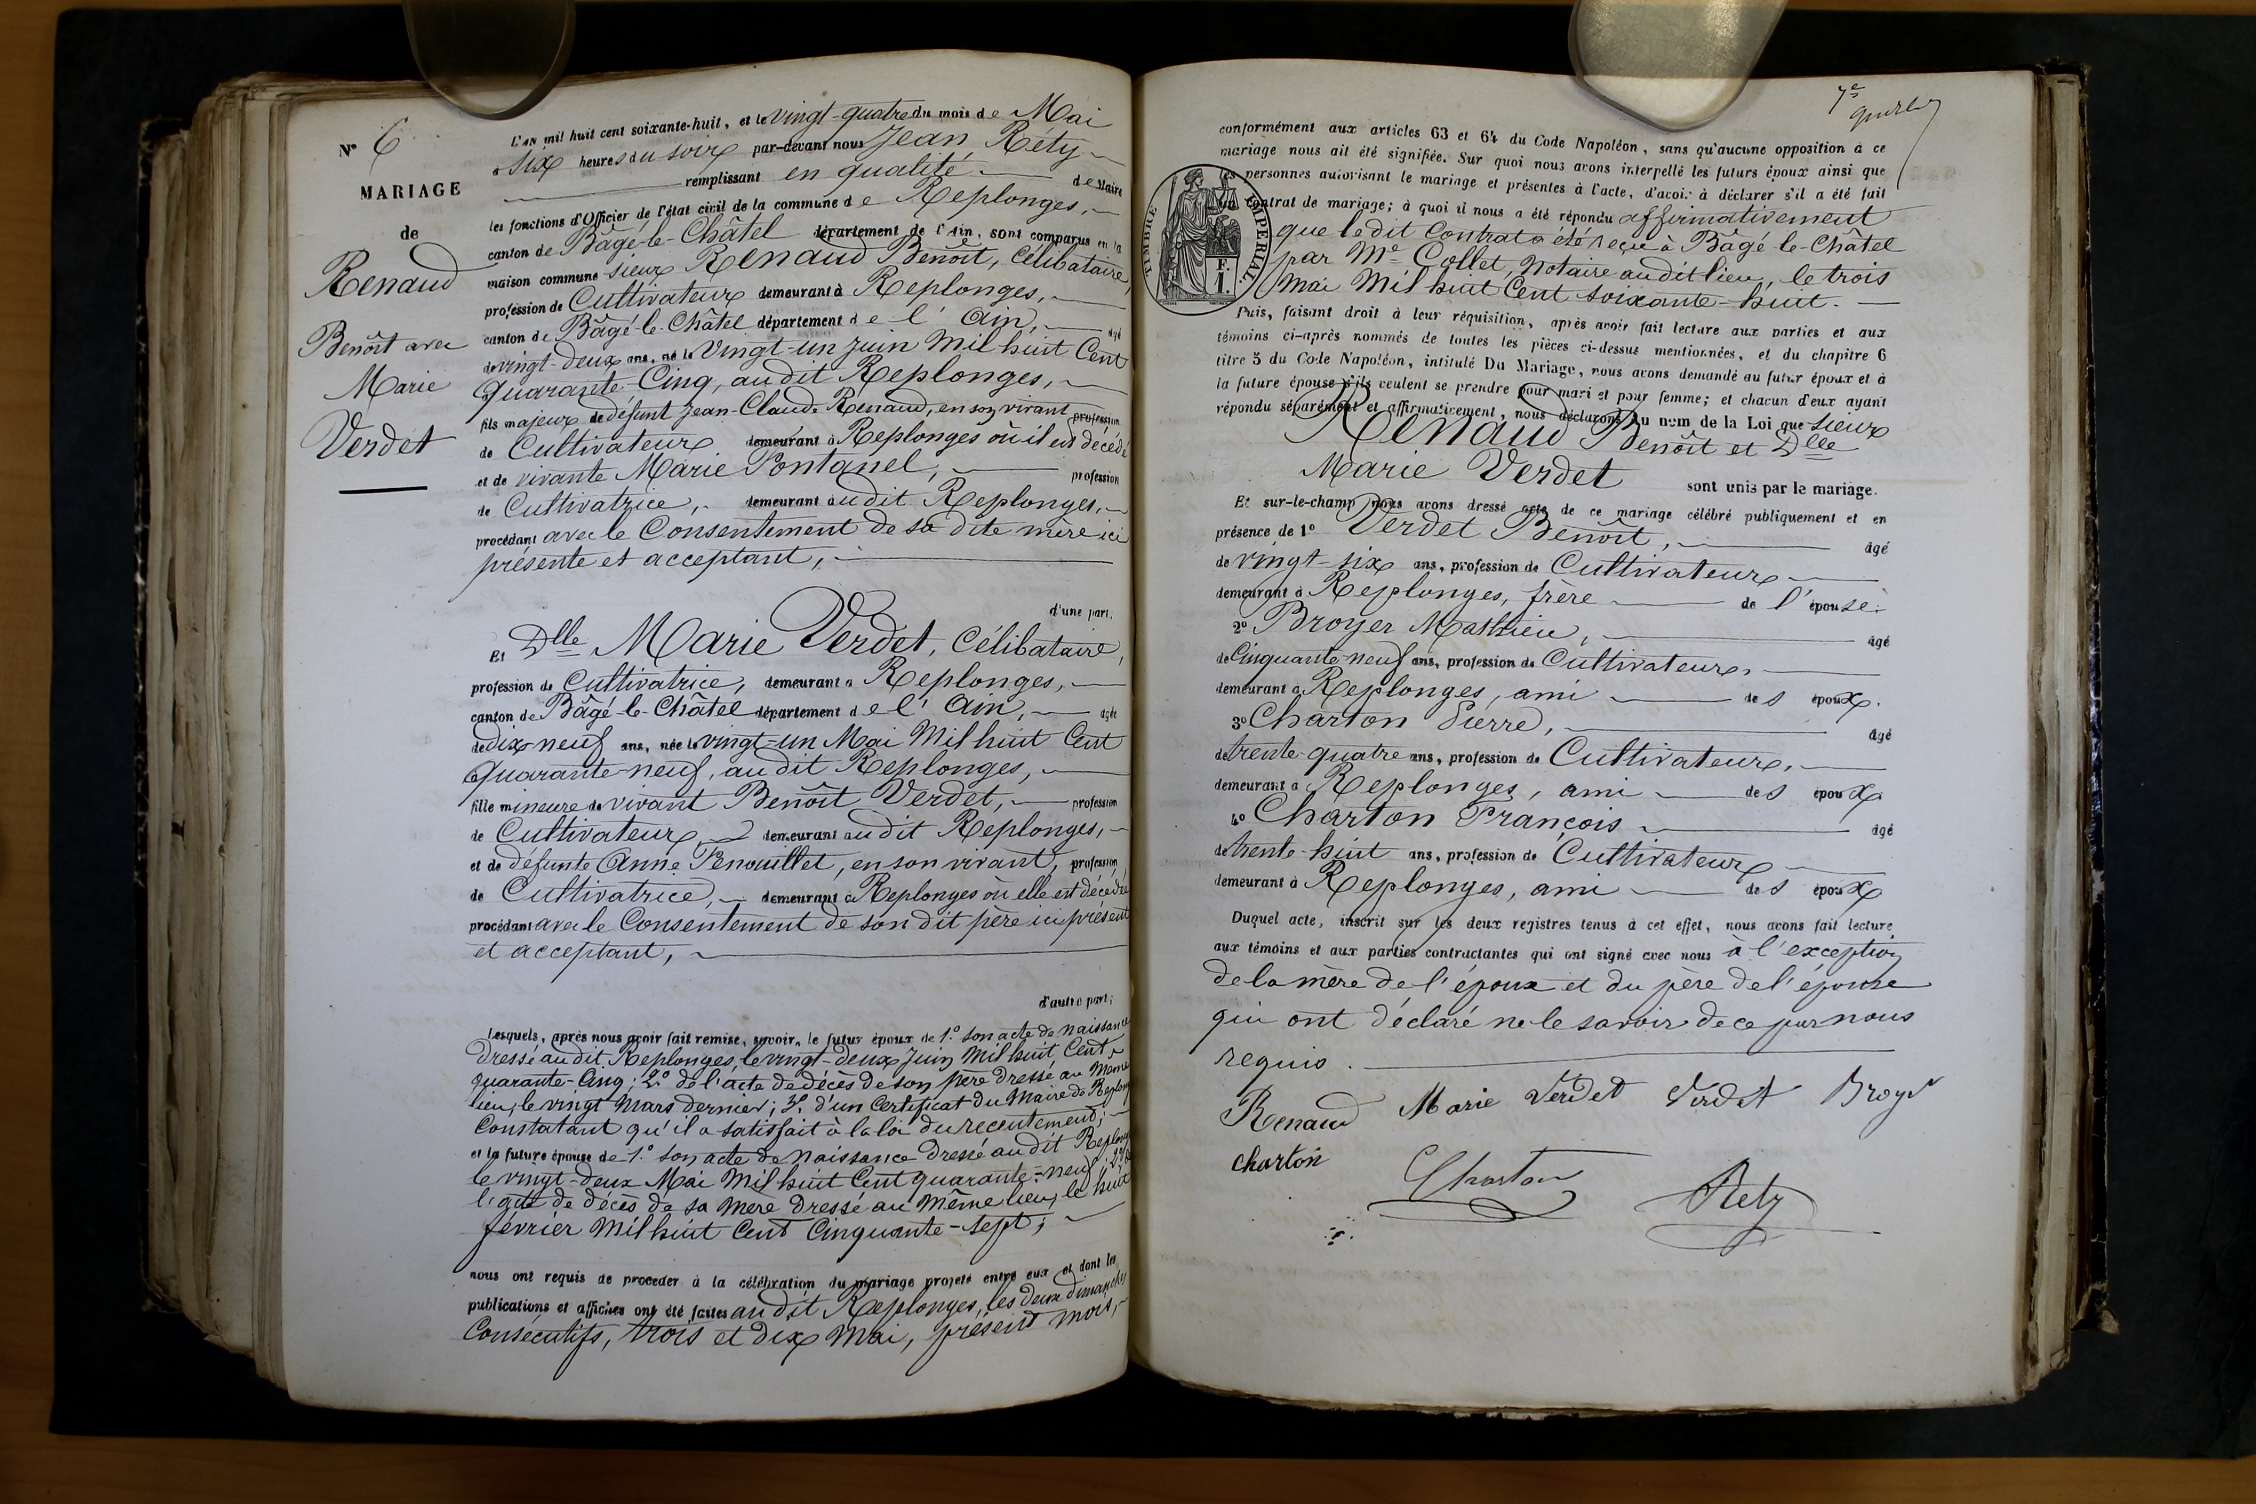 N° 6
MARIAGE
de
Renaud
Benoît avec
Marie
Verdet
L'an mil huit cent soixante-huit, et le vingt-quatre du mois de Mai
à six heures du soir par-devant nous Jean Réty
remplissant en qualité de Maire
les fonctions d'Officier de l'état civil de la commune de Replonges,
canton de Bâgé-le-Châtel département de l'Ain, sont comparus en la
maison commune sieur Renaud Benoît, Célibataire,
profession de Cultivateur demeurant à Replonges,
canton de Bâgé-le-Châtel département de l'Ain, âgé
de vingt-deux ans, né le Vingt-un juin Mil huit Cent
quarante-Cinq, audit Replonges,
fils majeur de défunt Jean-Claude Renaud, en son vivant profession
de Cultivateur demeurant à Replonges où il est décédé
et de vivante Marie Pontanel, profession
de Cultivatrice, demeurant audit Replonges,
procédant avec le Consentement de sa dite mère ici
présente et acceptant,
d'une part.
Et Dlle Marie Verdet, Célibataire,
profession de Cultivatrice, demeurant à Replonges,
canton de Bâgé-le-Châtel département de l'Ain, âgée
de Dix neuf ans, née le vingt-un Mai Mil huit Cent
Quarante-neuf, audit Replonges,
fille mineure de vivant Benoît Verdet, profession
de Cultivateur demeurant audit Replonges,
et de défunte Anne Penouillet, en son vivant, profession
de Cultivatrice, demeurant à Replonges où elle est décédée
procédant avec le Consentement de son dit père ici présent
et acceptant,
d'autre part;
Lesquels, après nous avoir fait remise, savoir, le futur époux de 1° son acte de naissance
dressé audit Replonges, le vingt-deux Juin Mil huit Cent
quarante-Cinq; 2° de l'acte de décès de son père dressé au même
lieu, le vingt Mars dernier; 3° d'un Certificat du Maire de Replonges
Constatant qu'il a satisfait à la loi du recrutement;
et la future épouse de 1° son acte de naissance dressé audit Replonges
le vingt-deux Mai Mil huit Cent quarante-neuf; 2° de
l'acte de décès de sa mère dressé au même lieu, le huit
février Mil huit Cent Cinquante-sept;
nous ont requis de procéder à la célébration du mariage projeté entre eux et dont les
publications et affiches ont été faites audit Replonges, les deux dimanches
Consécutifs, trois et dix Mai, présent mois,
7e
conformément aux articles 63 et 64 du Code Napoléon, sans qu'aucune opposition à ce
mariage nous ait été signifiée. Sur quoi nous avons interpellé les futurs époux ainsi que
les personnes autorisant le mariage et présentes à l'acte, d'avoir à déclarer s'il a été fait
un contrat de mariage; à quoi il nous a été répondu affirmativement
que ledit Contrat a été reçu à Bâgé-le-Châtel
par Me Collet, Notaire audit lieu, le trois
Mai Mil huit Cent soixante-huit.
TIMBRE IMPERIAL
F.
1.
Puis, faisant droit à leur réquisition, après avoir fait lecture aux parties et aux
témoins ci-après nommés de toutes les pièces ci-dessus mentionnées, et du chapitre 6
titre 5 du Code Napoléon, intitulé Du Mariage, nous avons demandé au futur époux et à
la future épouse s'ils veulent se prendre pour mari et pour femme; et chacun d'eux ayant
répondu séparément et affirmativement, nous déclarons au nom de la Loi que sieur
Renaud Benoît et Dlle
Marie Verdet sont unis par le mariage.
Et sur-le-champ nous avons dressé acte de ce mariage célébré publiquement et en
présence de 1° Verdet Benoît, âgé
de vingt-six ans, profession de Cultivateur
demeurant à Replonges, frère de l'épouse.
2° Broyer Mathieu, âgé
de Cinquante-neuf ans, profession de Cultivateur,
demeurant à Replonges, ami des époux.
3° Charton Pierre, âgé
de trente-quatre ans, profession de Cultivateur,
demeurant à Replonges, ami des époux
4° Charton François âgé
de trente-huit ans, profession de Cultivateur
demeurant à Replonges, ami des époux
Duquel acte, inscrit sur les deux registres tenus à cet effet, nous avons fait lecture
aux témoins et aux parties contractantes qui ont signé avec nous à l'exception
de la mère de l'époux et du père de l'épouse
qui ont déclaré ne le savoir de ce par nous
requis.
Renaud Marie Verdet Verdet Broyer
charton Charton Rety